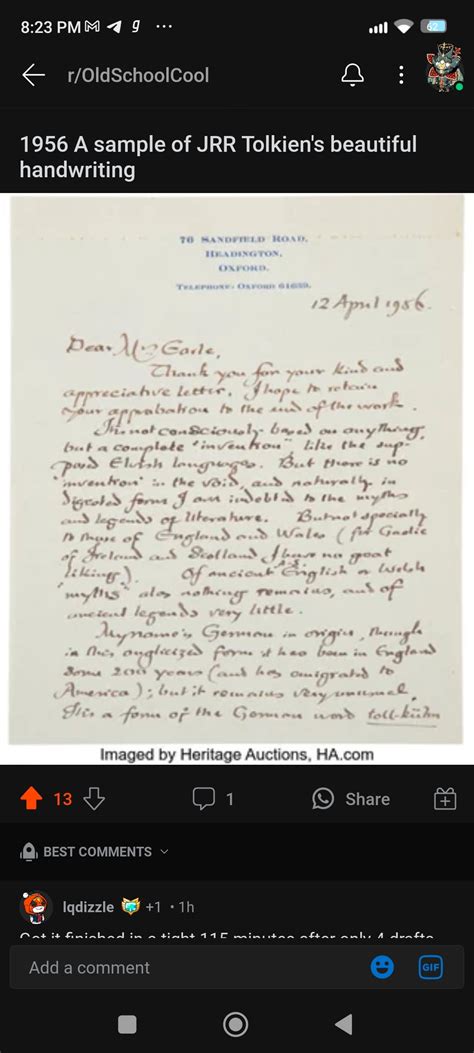 8:23 PM g ...
62
r/OldSchoolCool
1956 A sample of JRR Tolkien's beautiful
handwriting
76 SANDFIELD ROAD,
HEADINGTON,
OXFORD.
TELEPHONE: OXFORD 61639.
12 April 1956.
Dear Mrs Earle,
Thank you for your kind and
appreciative letter. I hope to retain
your approbation to the end of the work.
It is not consciously based on anything,
but a complete "invention" like the sup-
posed Elvish languages. But there is no
'invention' in the void, and naturally in
digested form I am indebted to the myths
and legends of literature. But not specially
to those of England and Wales (for Gaelic
of Ireland and Scotland I have no great
liking). Of ancient English or Welsh
'myths' alas nothing remains, and of
ancient legends very little.
My name is German in origin, though
in this anglicized form it has been in England
some 200 years (and has emigrated to
America); but it remains very unusual.
It is a form of the German word toll-kühn
Imaged by Heritage Auctions, HA.com
13
1
Share
BEST COMMENTS
Iqdizzle +1 • 1h
Got it finished in a tight 115 minutes after only 4 drafts
Add a comment
GIF